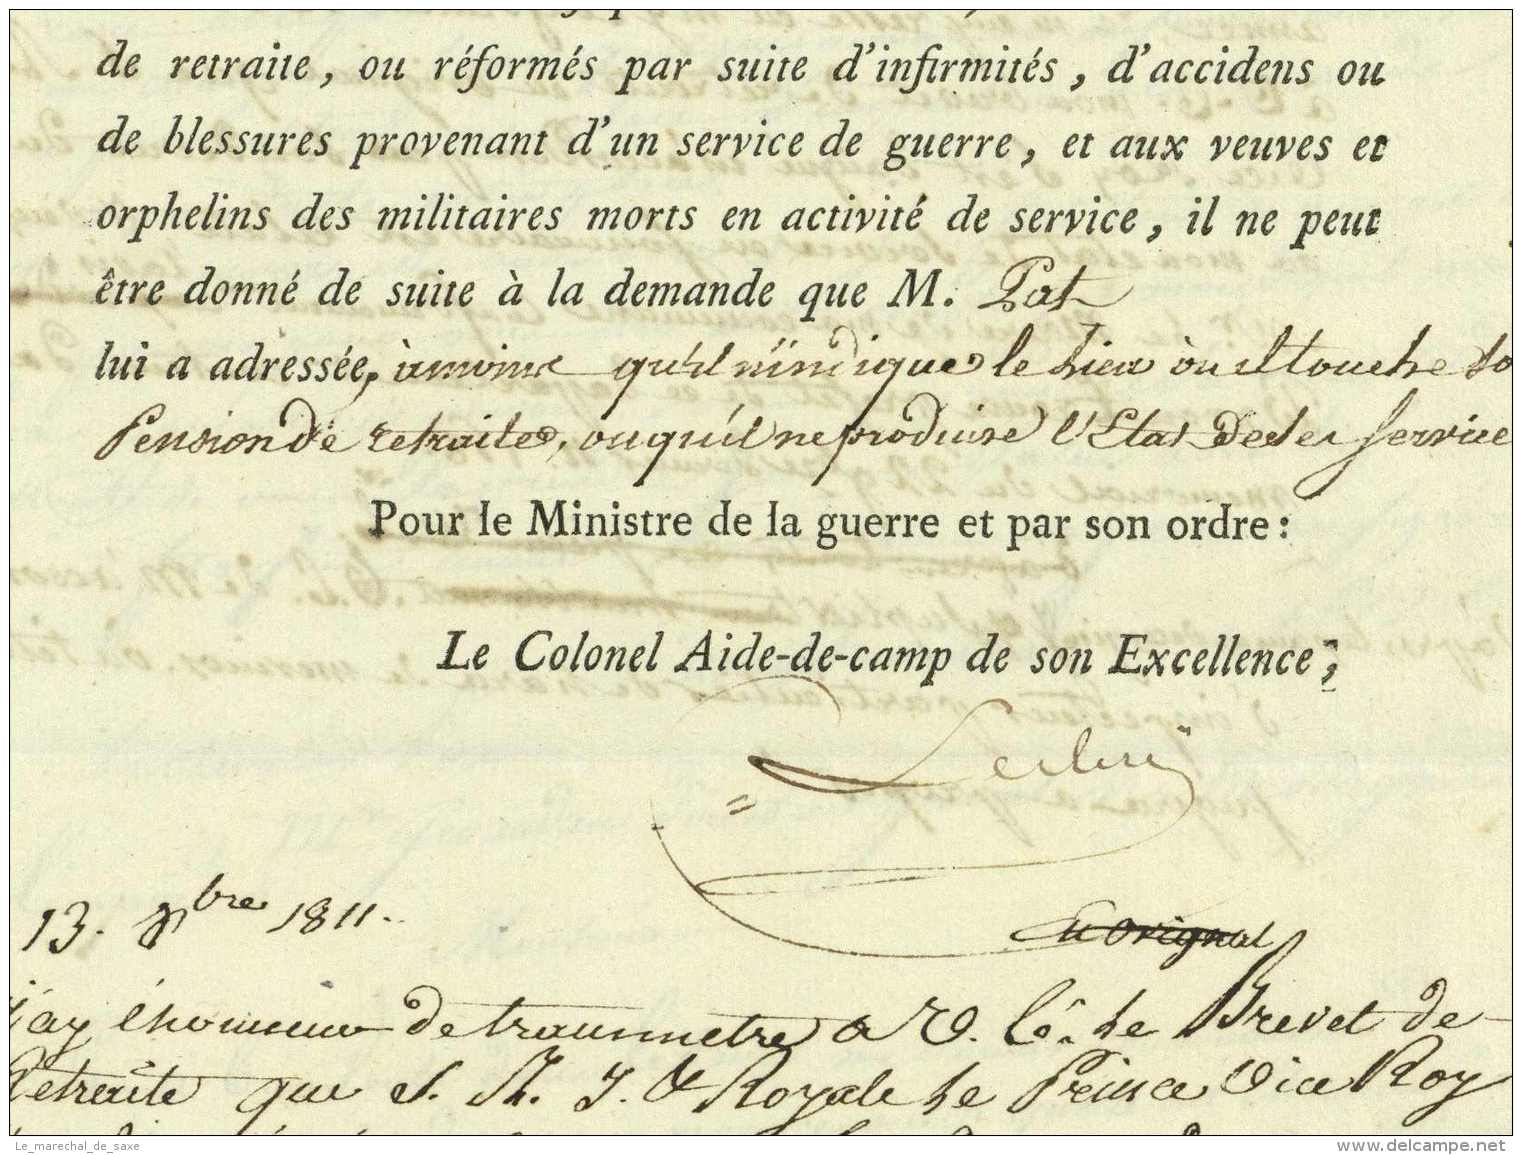 de retraite, ou réformés par suite d'infirmités, d'accidens ou
de blessures provenant d'un service de guerre, et aux veuves et
orphelins des militaires morts en activité de service, il ne peut
être donné de suite à la demande que M. Pat
lui a adressée, à moins qu'il n'indique le lieu où il touche sa
Pension de retraite, ou qu'il ne produise l'Etat de ses service
Pour le Ministre de la guerre et par son ordre:
Le Colonel Aide-de-camp de son Excellence,
13. 8bre 1811.
en original
j'ay l'honneur de transmettre a V. Ce. le Brevet de
Retraite que S. A. I. & Royale le Prince Vice Roy
Le_marechal_de_saxe
www.delcampe.net